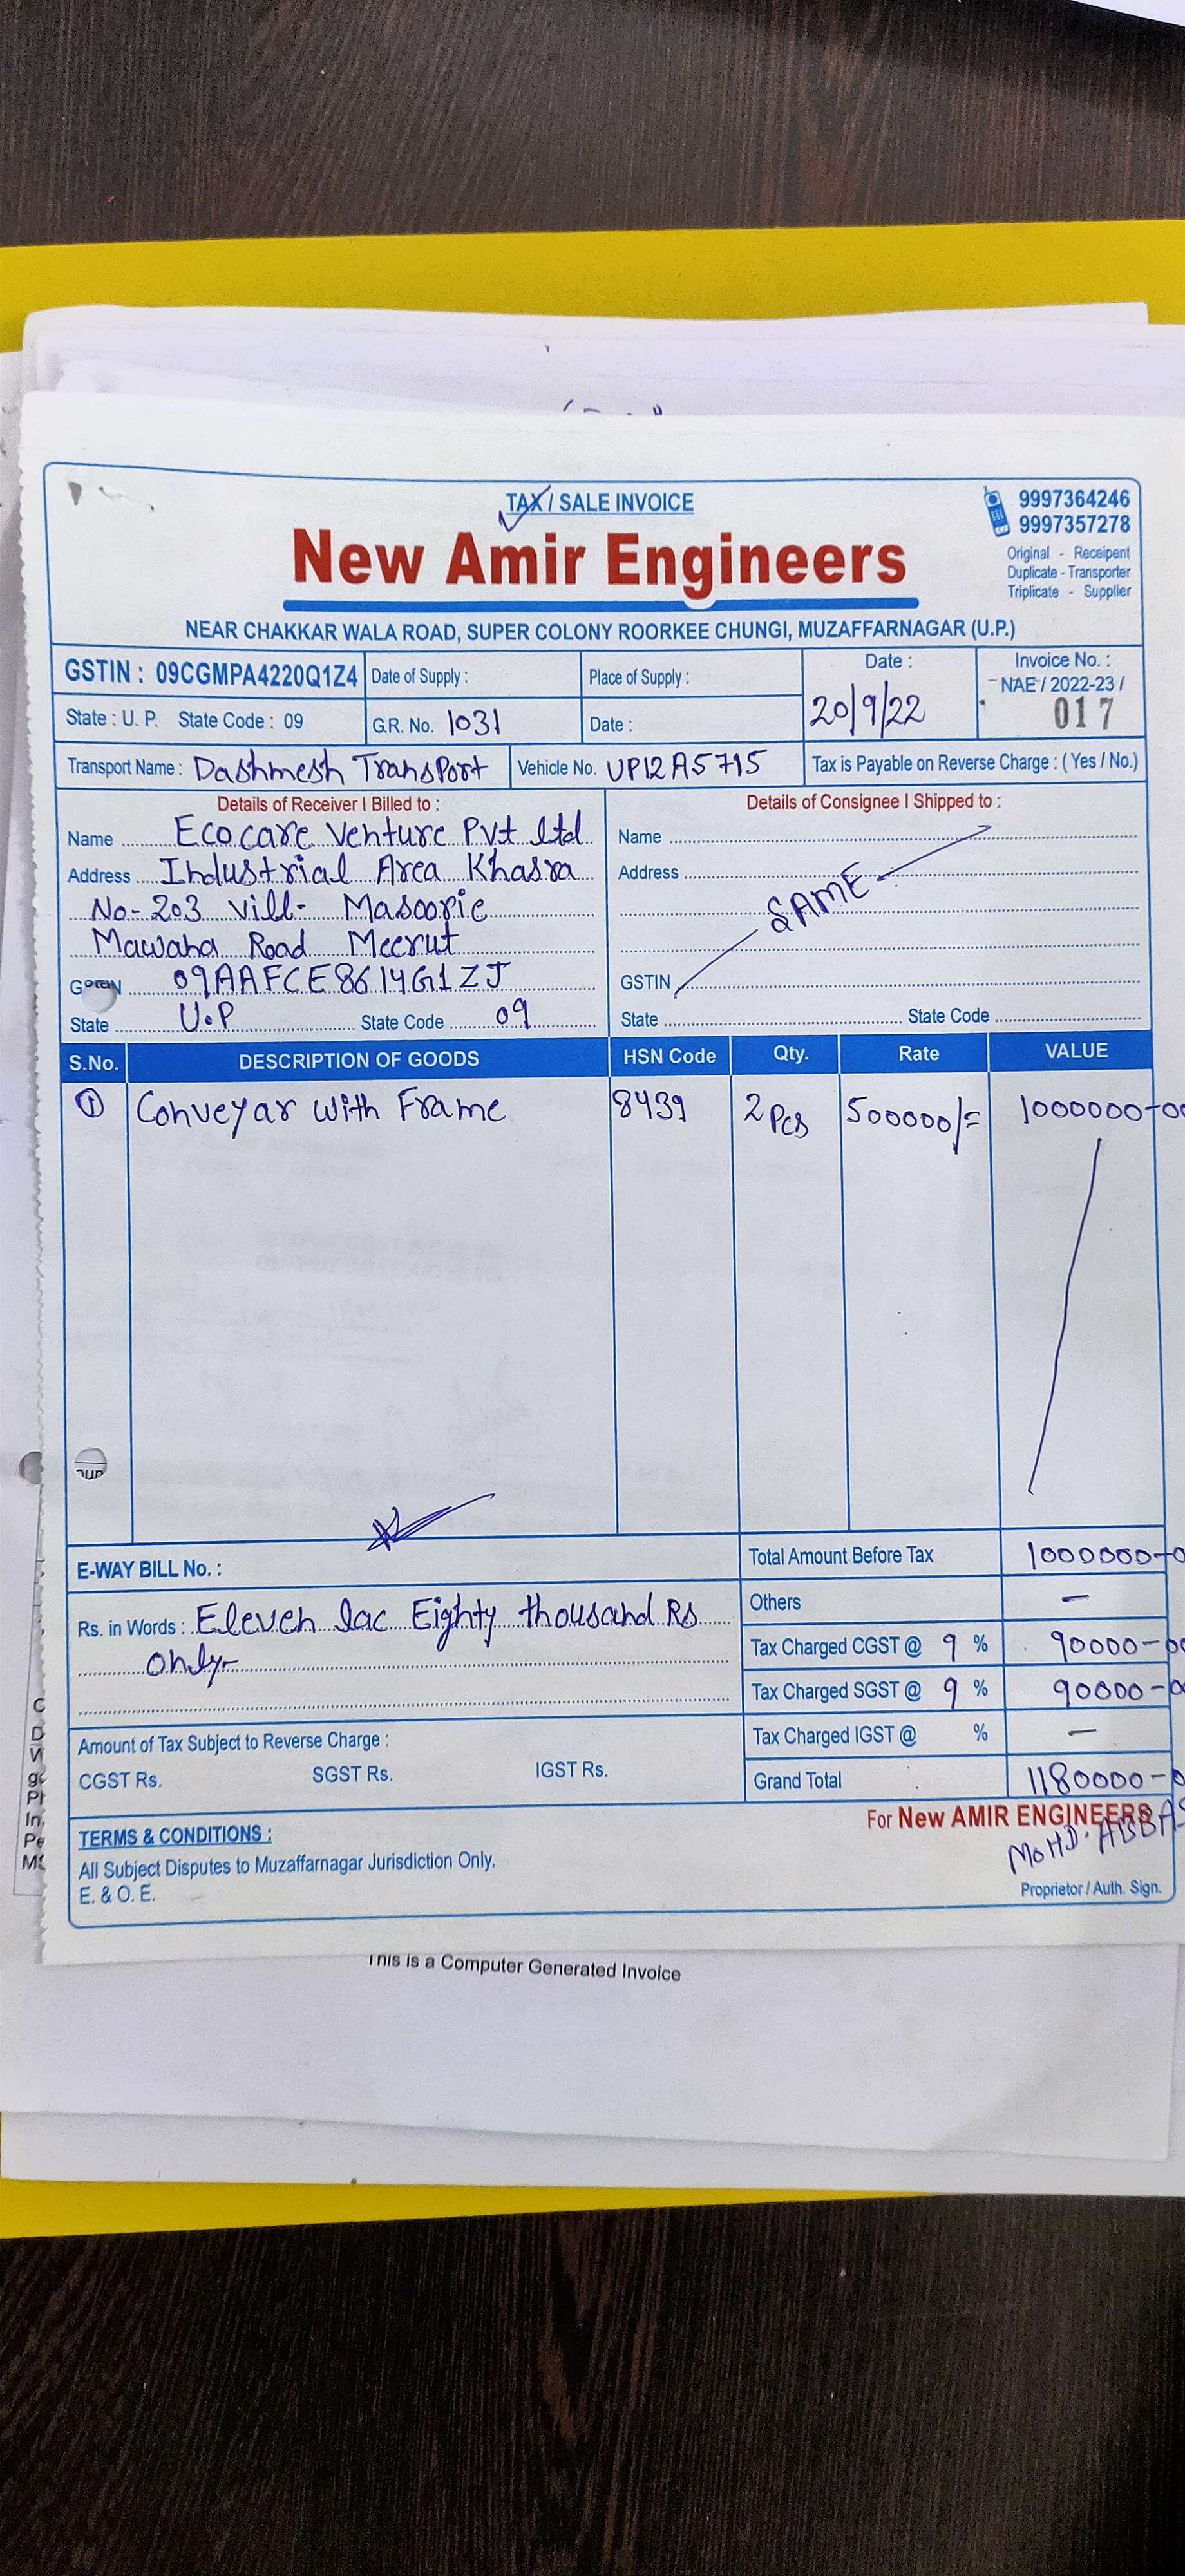 TAX / SALE INVOICE
9997364246
9997357278
Original - Receipent
Duplicate - Transporter
Triplicate - Supplier
New Amir Engineers
NEAR CHAKKAR WALA ROAD, SUPER COLONY ROORKEE CHUNGI, MUZAFFARNAGAR (U.P.)
GSTIN : 09CGMPA4220Q1Z4 Date of Supply : Place of Supply : Date : 20/9/22 Invoice No. : NAE / 2022-23 / 017
State : U. P. State Code : 09 G.R. No. 1031 Date :
Transport Name : Dashmesh Transport Vehicle No. UP12A5715 Tax is Payable on Reverse Charge : ( Yes / No.)
Details of Receiver I Billed to : Details of Consignee I Shipped to :
Name Ecocare Venture Pvt ltd Name
Address Industrial Area Khasra Address
No- 203 Vill- Masoorie SAME
Mawana Road Meerut
09AAFCE8614G1ZJ GSTIN
State U.P State Code 09 State State Code
S.No. DESCRIPTION OF GOODS HSN Code Qty. Rate VALUE
1 Conveyar with Frame 8439 2 Pcs 500000/= 1000000-00
E-WAY BILL No. : Total Amount Before Tax 1000000-0
Others —
Rs. in Words : Eleven lac Eighty thousand Rs
only-
Tax Charged CGST @ 9 % 90000-00
Tax Charged SGST @ 9 % 90000-00
Amount of Tax Subject to Reverse Charge : Tax Charged IGST @ % —
CGST Rs. SGST Rs. IGST Rs. Grand Total 1180000-0
For New AMIR ENGINEERS
MOHD. ABBAS
Proprietor / Auth. Sign.
TERMS & CONDITIONS :
All Subject Disputes to Muzaffarnagar Jurisdiction Only.
E. & O. E.
This is a Computer Generated Invoice